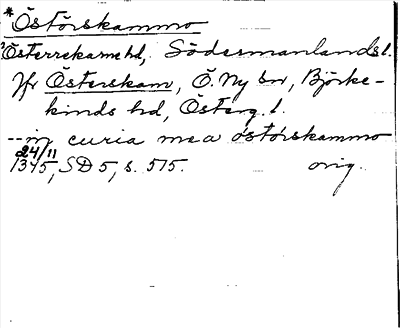 *Östörskammo
?Österrekarne hd, Södermanlands l.
Jfr Österskam, Ö. Ny sn, Björke-
kinds hd, Österg. l.
--in curia mea östörskammo
24/11
1345, SD 5, s. 515. orig.